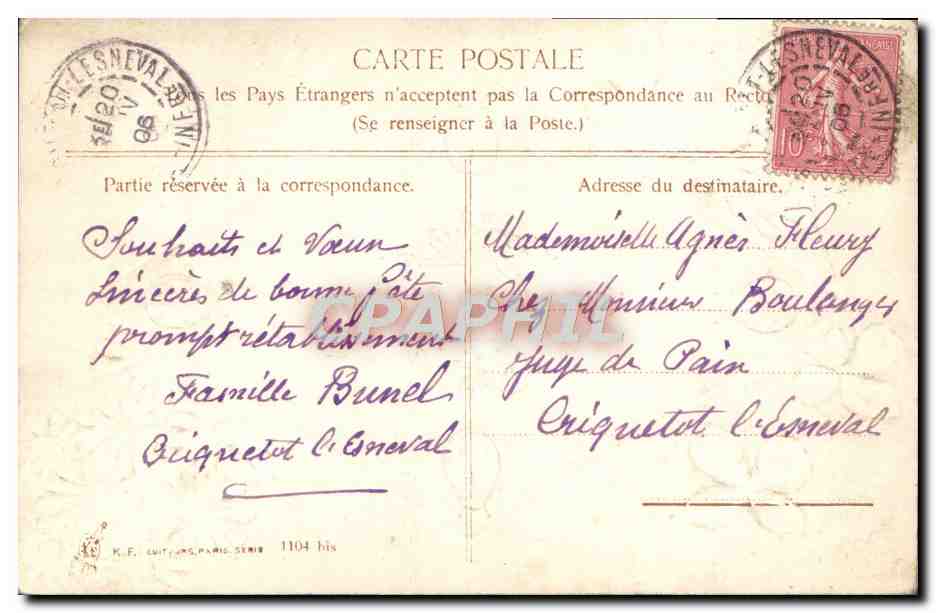 CARTE POSTALE
les Pays Étrangers n'acceptent pas la Correspondance au Recto
(Se renseigner à la Poste.)
LESNEVAL
20
IV
06
LESNEVAL
20
IV
06
10
Partie réservée à la correspondance.
Souhaits et Vœux
Sincères de bonne fête
prompt rétablissement
Famille Bunel
Criquetot l'Esneval
Adresse du destinataire.
Mademoiselle Agnès Fleury
Chez Monsieur Boulanger
Juge de Paix
Criquetot l'Esneval
CPAPHIL
K.F. EDITEURS, PARIS. SERIE 1104 bis